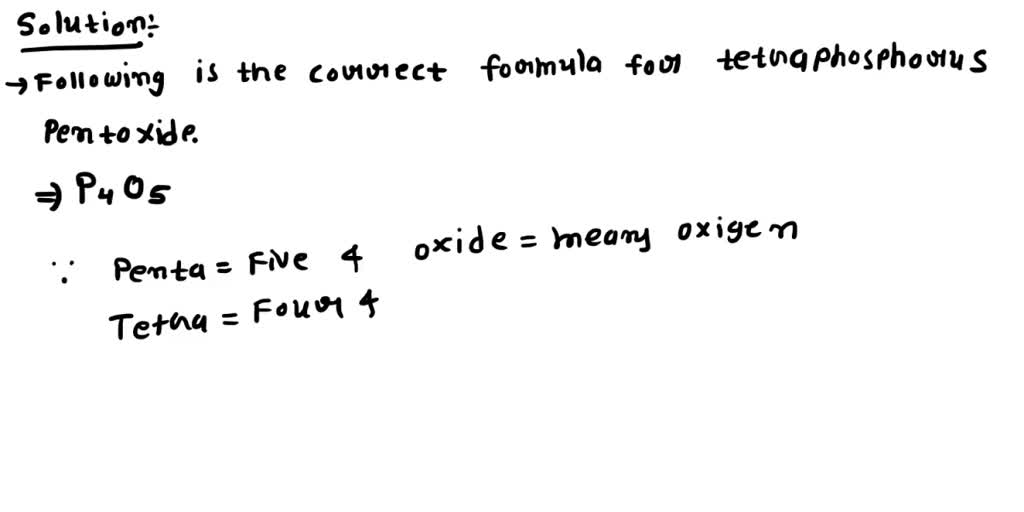 Solution:-
→ Following is the correct formula for tetraphosphorus
Pentoxide.
⇒ P4O5
∵ Penta = Five & oxide = means oxigen
Tetra = Four &